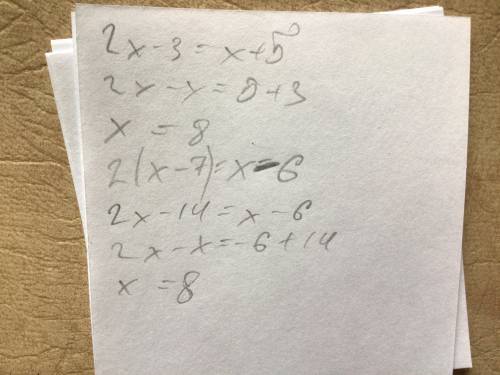 2x-3=x+5
2x-x=5+3
x=8
2(x-7)=x-6
2x-14=x-6
2x-x=-6+14
x=8